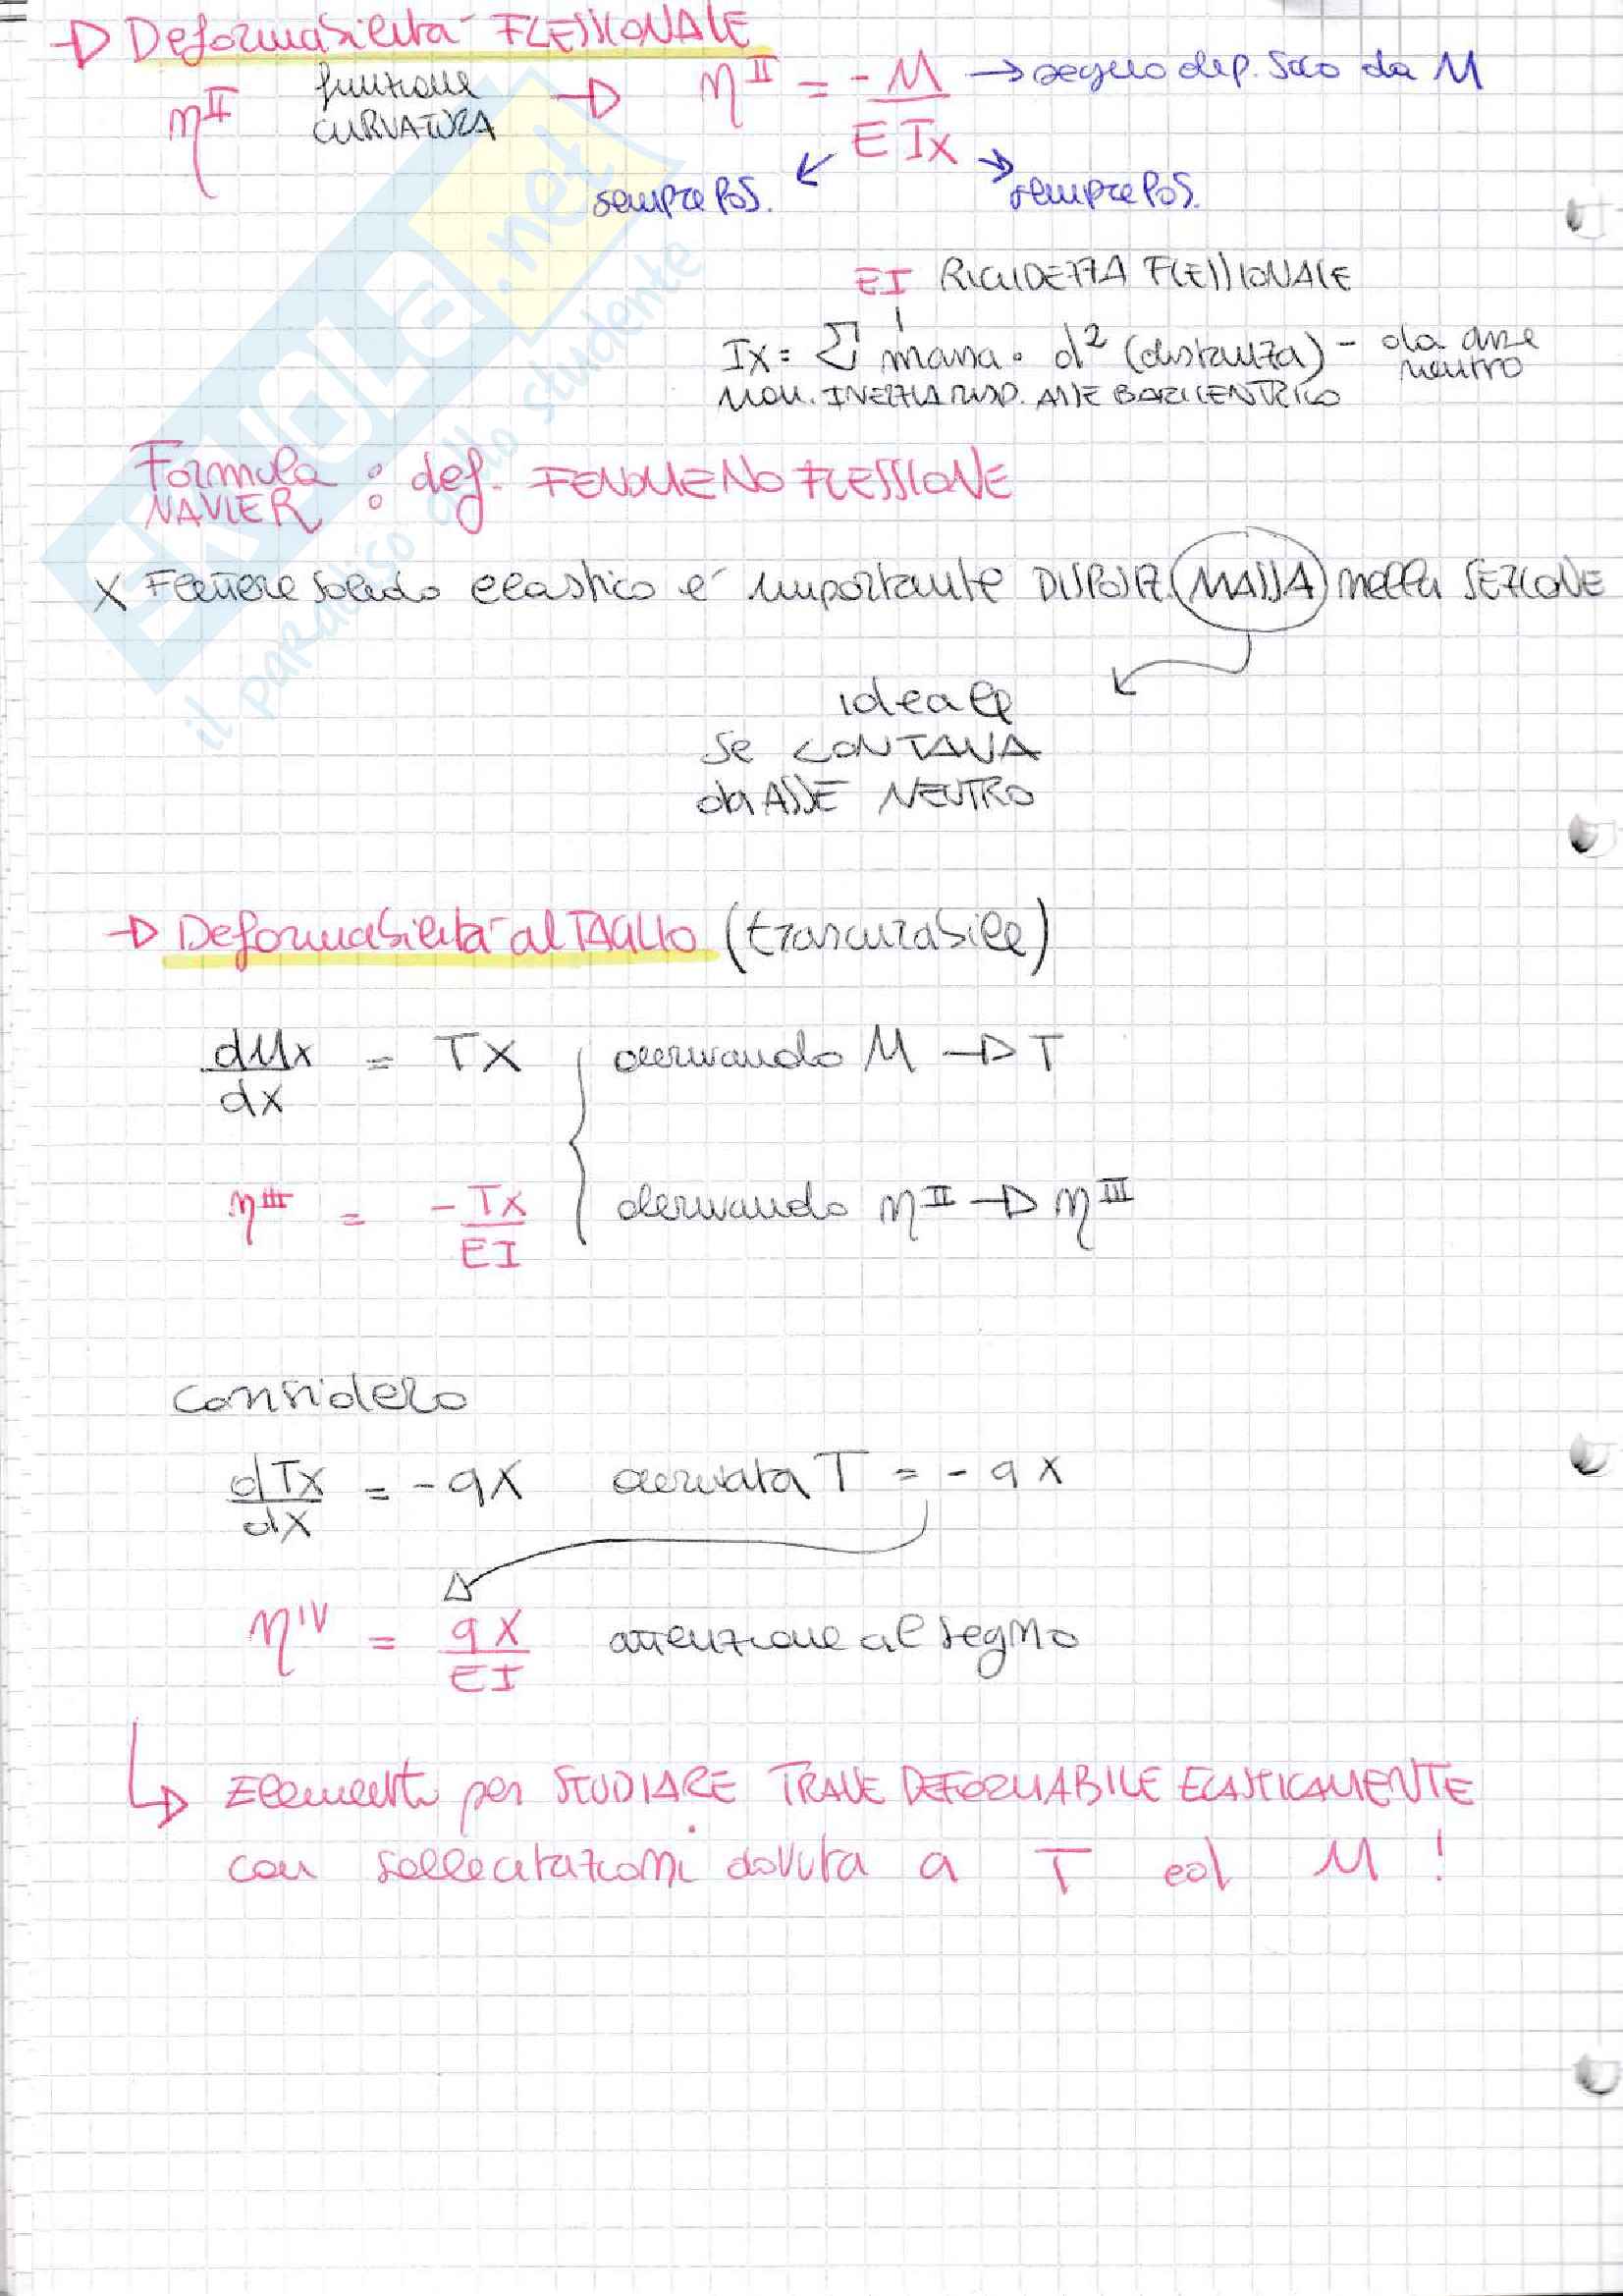 → Deformabilità FLESSIONALE
η^II funzione CURVATURA → η^II = -M / E Ix → segno dep. solo da M
sempre POS. sempre POS.
EI RIGIDEZZA FLESSIONALE
Ix = Σ massa · d² (distanza) - da asse neutro
MOM. INERZIA RISP. ASSE BARICENTRICO
Formula NAVIER : def. FENOMENO FLESSIONE
X Flettere solido elastico è importante DISPOSIZ. MASSA nella SEZIONE
ideale
se LONTANA
da ASSE NEUTRO
→ Deformabilità al TAGLIO (trascurabile)
dMx / dx = Tx derivando M → T
η^III = -Tx / EI derivando η^II → η^III
considero
dTx / dx = -qx derivata T = -qx
η^IV = qx / EI attenzione al segno
↳ Elementi per STUDIARE TRAVE DEFORMABILE ELASTICAMENTE
con sollecitazioni dovuta a T ed M !
SKUOLA.net
il paradiso dello studente